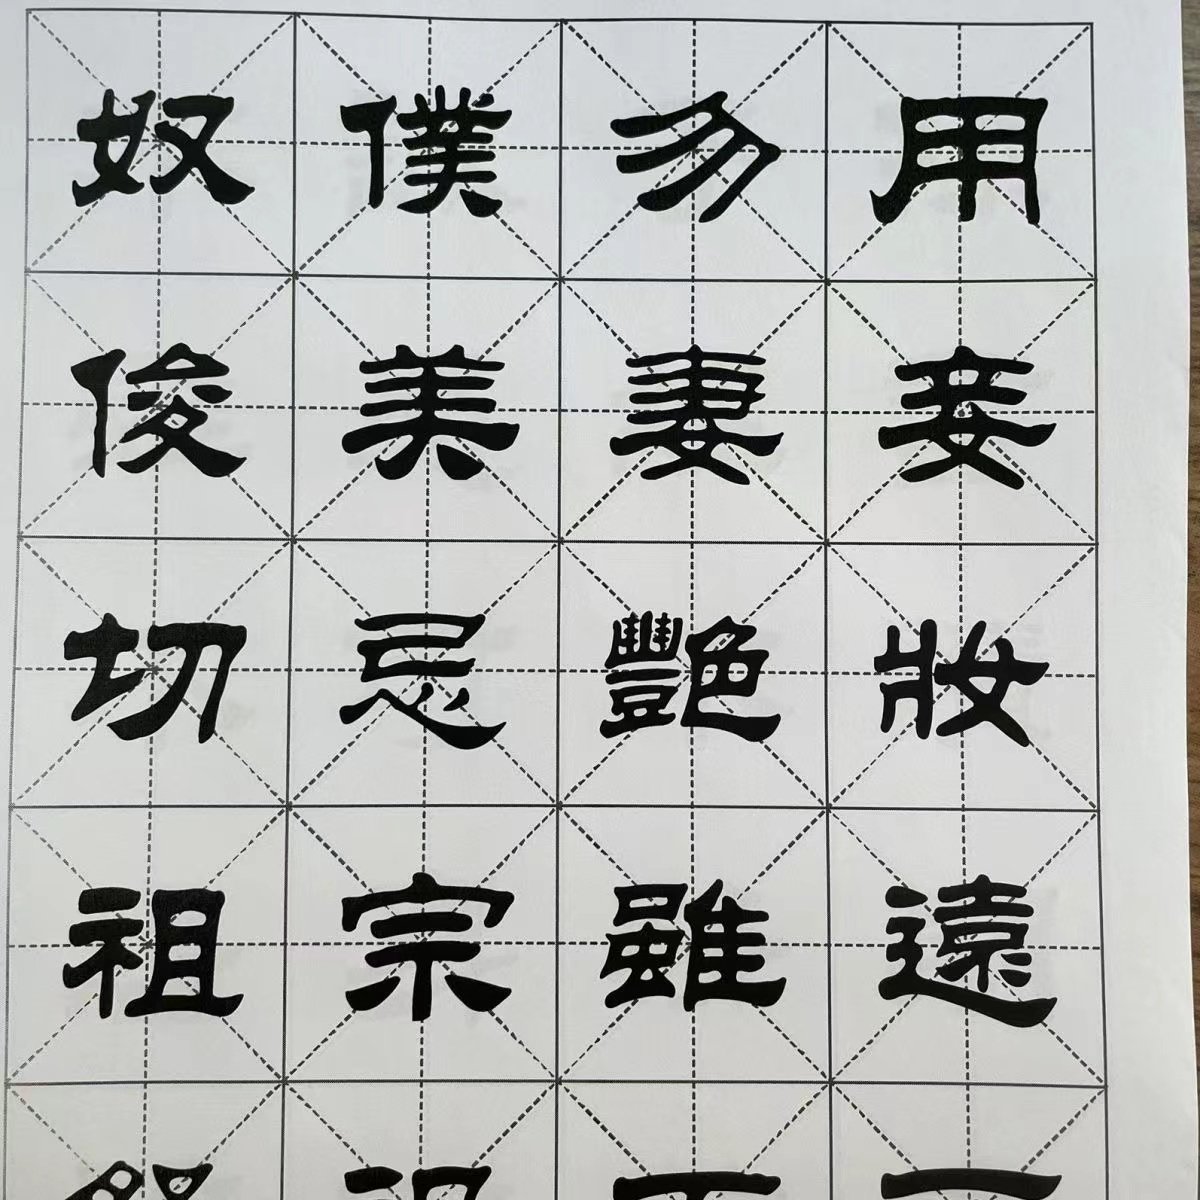 奴僕勿用
俊美妻妾
切忌艷妝
祖宗雖遠